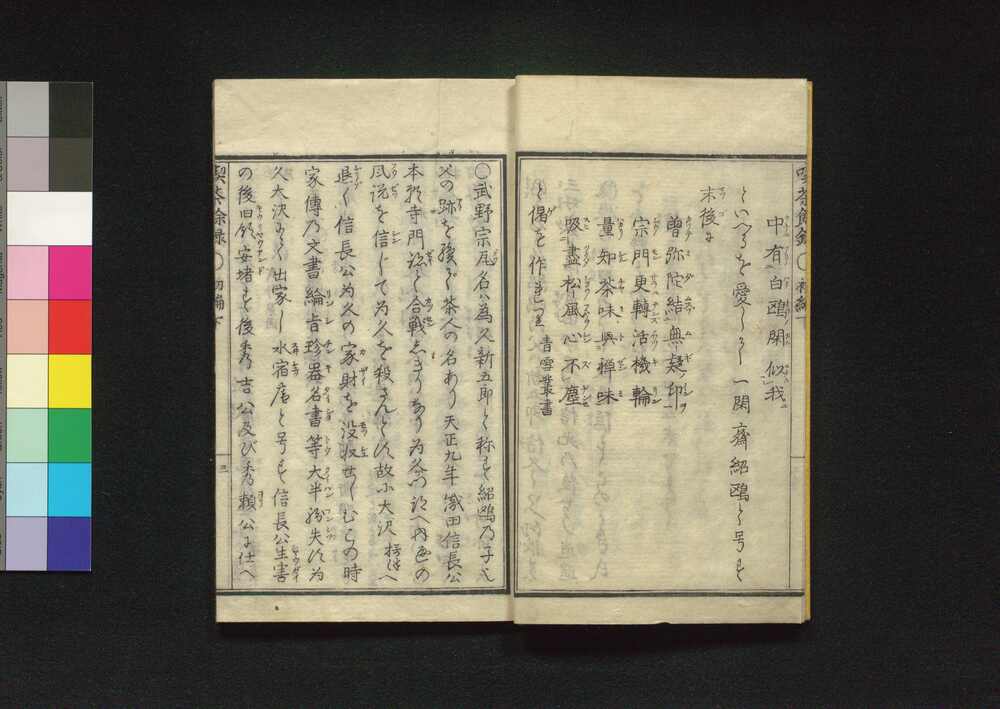 喫茶餘録 初編下
中有白鴎閑似我
といへるを愛しくし一閑斎紹鴎と号す
末後に
曽弥陀結無礙印
宗門更轉活機輪
量知茶味與禅味
吸盡松風心不塵
と偈を作れり 青雲叢書
〇武野宗瓦名ハ為久新五郎と称す紹鴎乃子也
父の跡を継ぎ茶人の名あり天正九年織田信長公
本願寺門跡と合戦
風説を信じて為久を殺さんとす故に大沢
退く信長公為久の家財を没収せしむこの時
家傳乃文書綸旨珍器名書等大半紛失す為
久大沢にて出家し水宿庵と号す信長公生害
の後旧領安堵す後秀吉公及び秀頼公に仕へ
喫茶餘録 初編下
三